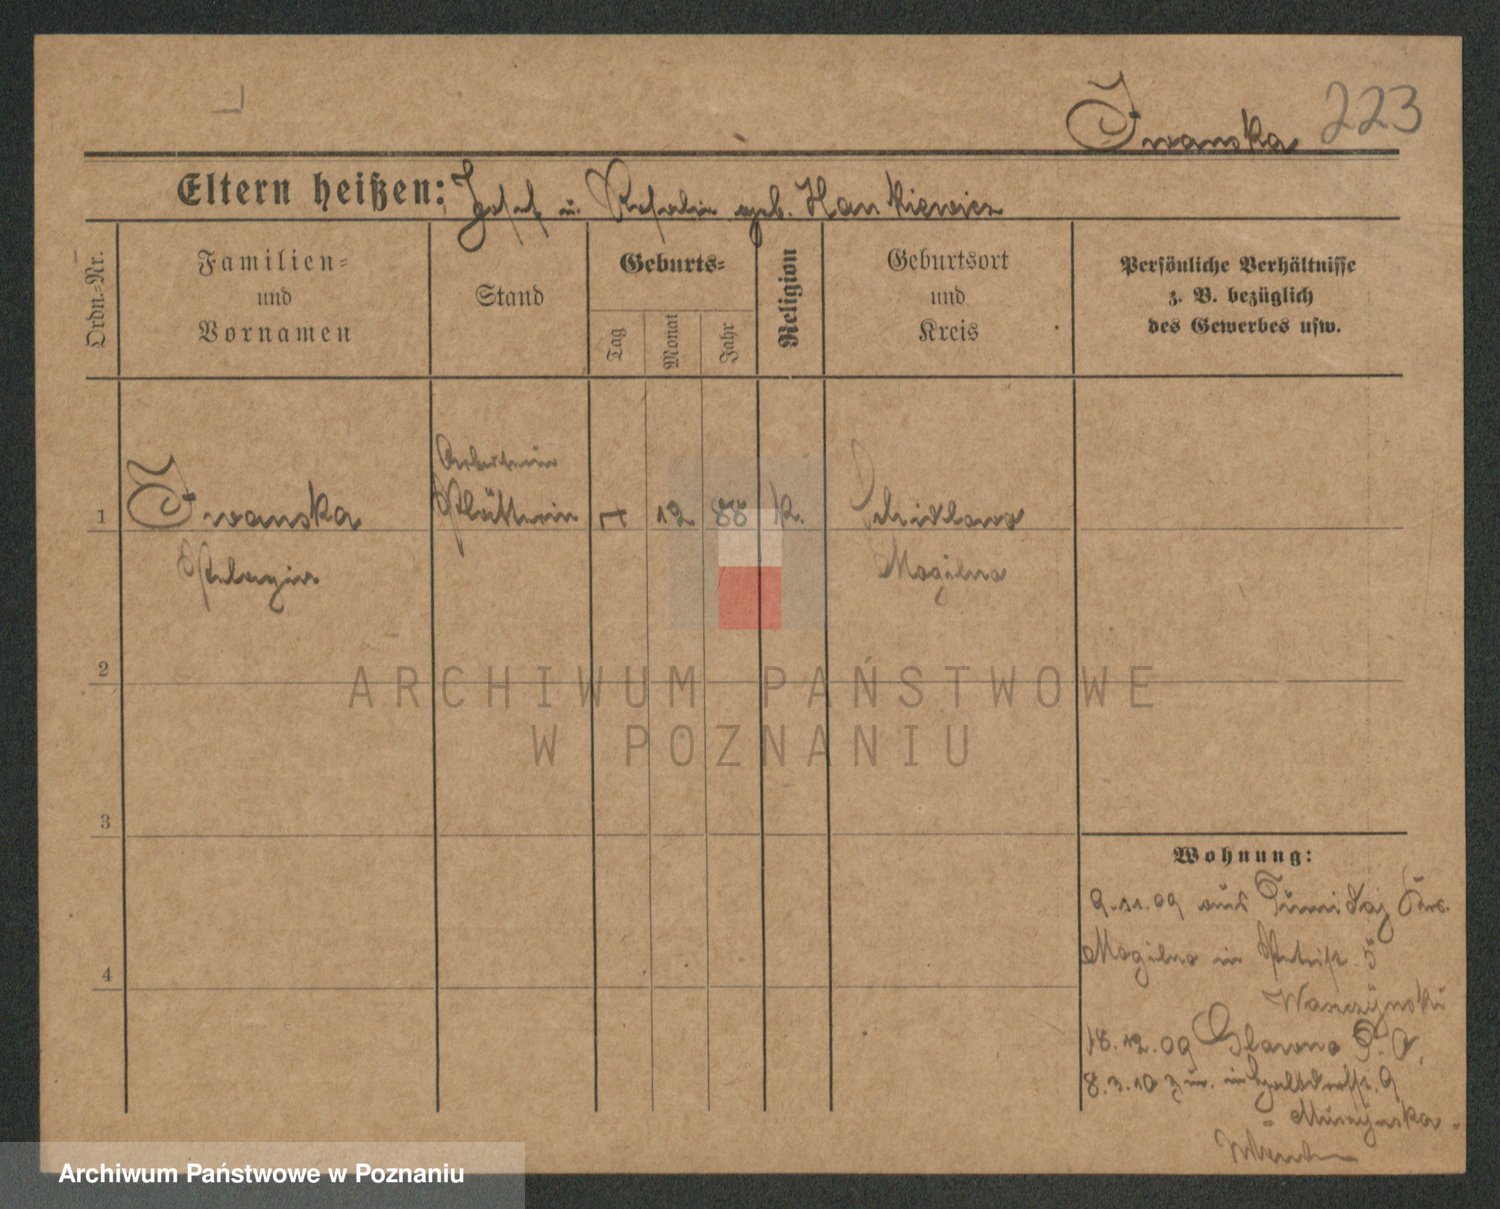 Iwanska 223
Eltern heißen: Josef u. Rosalie geb. Hankiewicz
Ordn.-Nr.
Familien-
und
Vornamen
Stand
Geburts-
Tag
Monat
Jahr
Religion
Geburtsort
und
Kreis
Persönliche Verhältnisse
z. B. bezüglich
des Gewerbes usw.
Arbeiterin
1 Iwanska Plätterin 12 88 K.
Pelagia Mogilno
2
3
4
Wohnung:
9.11.09 aus Krs.
Mogilno in 5
18.12.09 Glowno P. O.
8.3.10 zur. in 9
ARCHIWUM PAŃSTWOWE
W POZNANIU
Archiwum Państwowe w Poznaniu